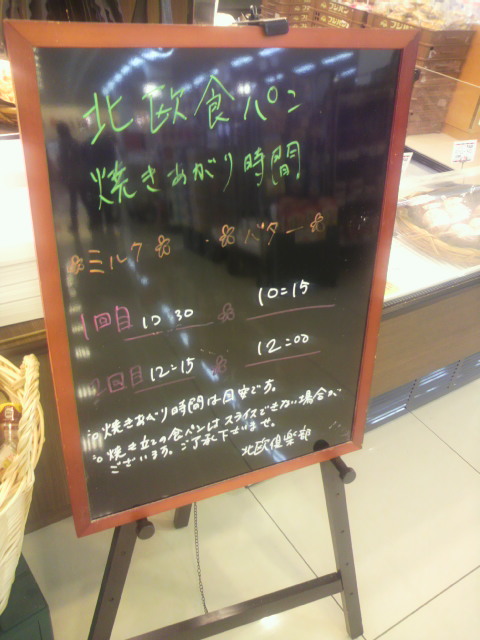 北欧食パン
焼きあがり時間
ミルク バター
1回目 10:30 10:15
2回目 12:15 12:00
焼きあがり時間は目安です。
焼き立ての食パンはスライスできない場合が
ございます。ご了承下さいませ。
北欧倶楽部